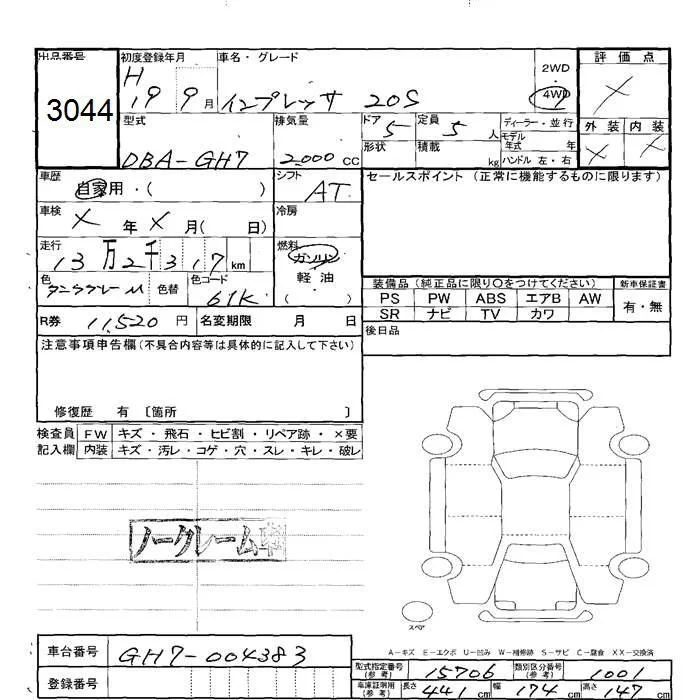 出品番号
3044
初度登録年月
H
19 9月
車名・グレード
インプレッサ 20S
2WD
4WD
評価点
×
外装 内装
× ×
型式
DBA-GH7
排気量
2,000 CC
ドア 5
形状
定員 5 人
積載 kg
ディーラー・並行
モデル年式 年
ハンドル 左・右
車歴
自家用・( )
シフト
AT
セールスポイント (正常に機能するものに限ります)
車検
× 年 × 月( 日)
冷房
走行
13万2千317 km
燃料
ガソリン
軽油
( )
色
色替
色コード
61K
装備品 (純正品に限り○をつけてください)
PS PW ABS エアB AW
SR ナビ TV カワ
新車保証書
有・無
R券 11,520 円
名変期限 月 日
後日品
注意事項申告欄 (不具合内容等は具体的に記入して下さい)
修復歴 有 〔箇所 〕
検査員記入欄
FW キズ・飛石・ヒビ割・リペア跡・×要
内装 キズ・汚レ・コゲ・穴・スレ・キレ・破レ
ノークレーム車
スペア
A-キズ E-エクボ U-凹み W-補修跡 S-サビ C-腐食 XX-交換済
車台番号 GH7-004383
登録番号
型式指定番号(参考) 15706
類別区分番号(参考) 1001
車庫証明用(参考) 長さ 441 cm 幅 174 cm 高さ 147 cm